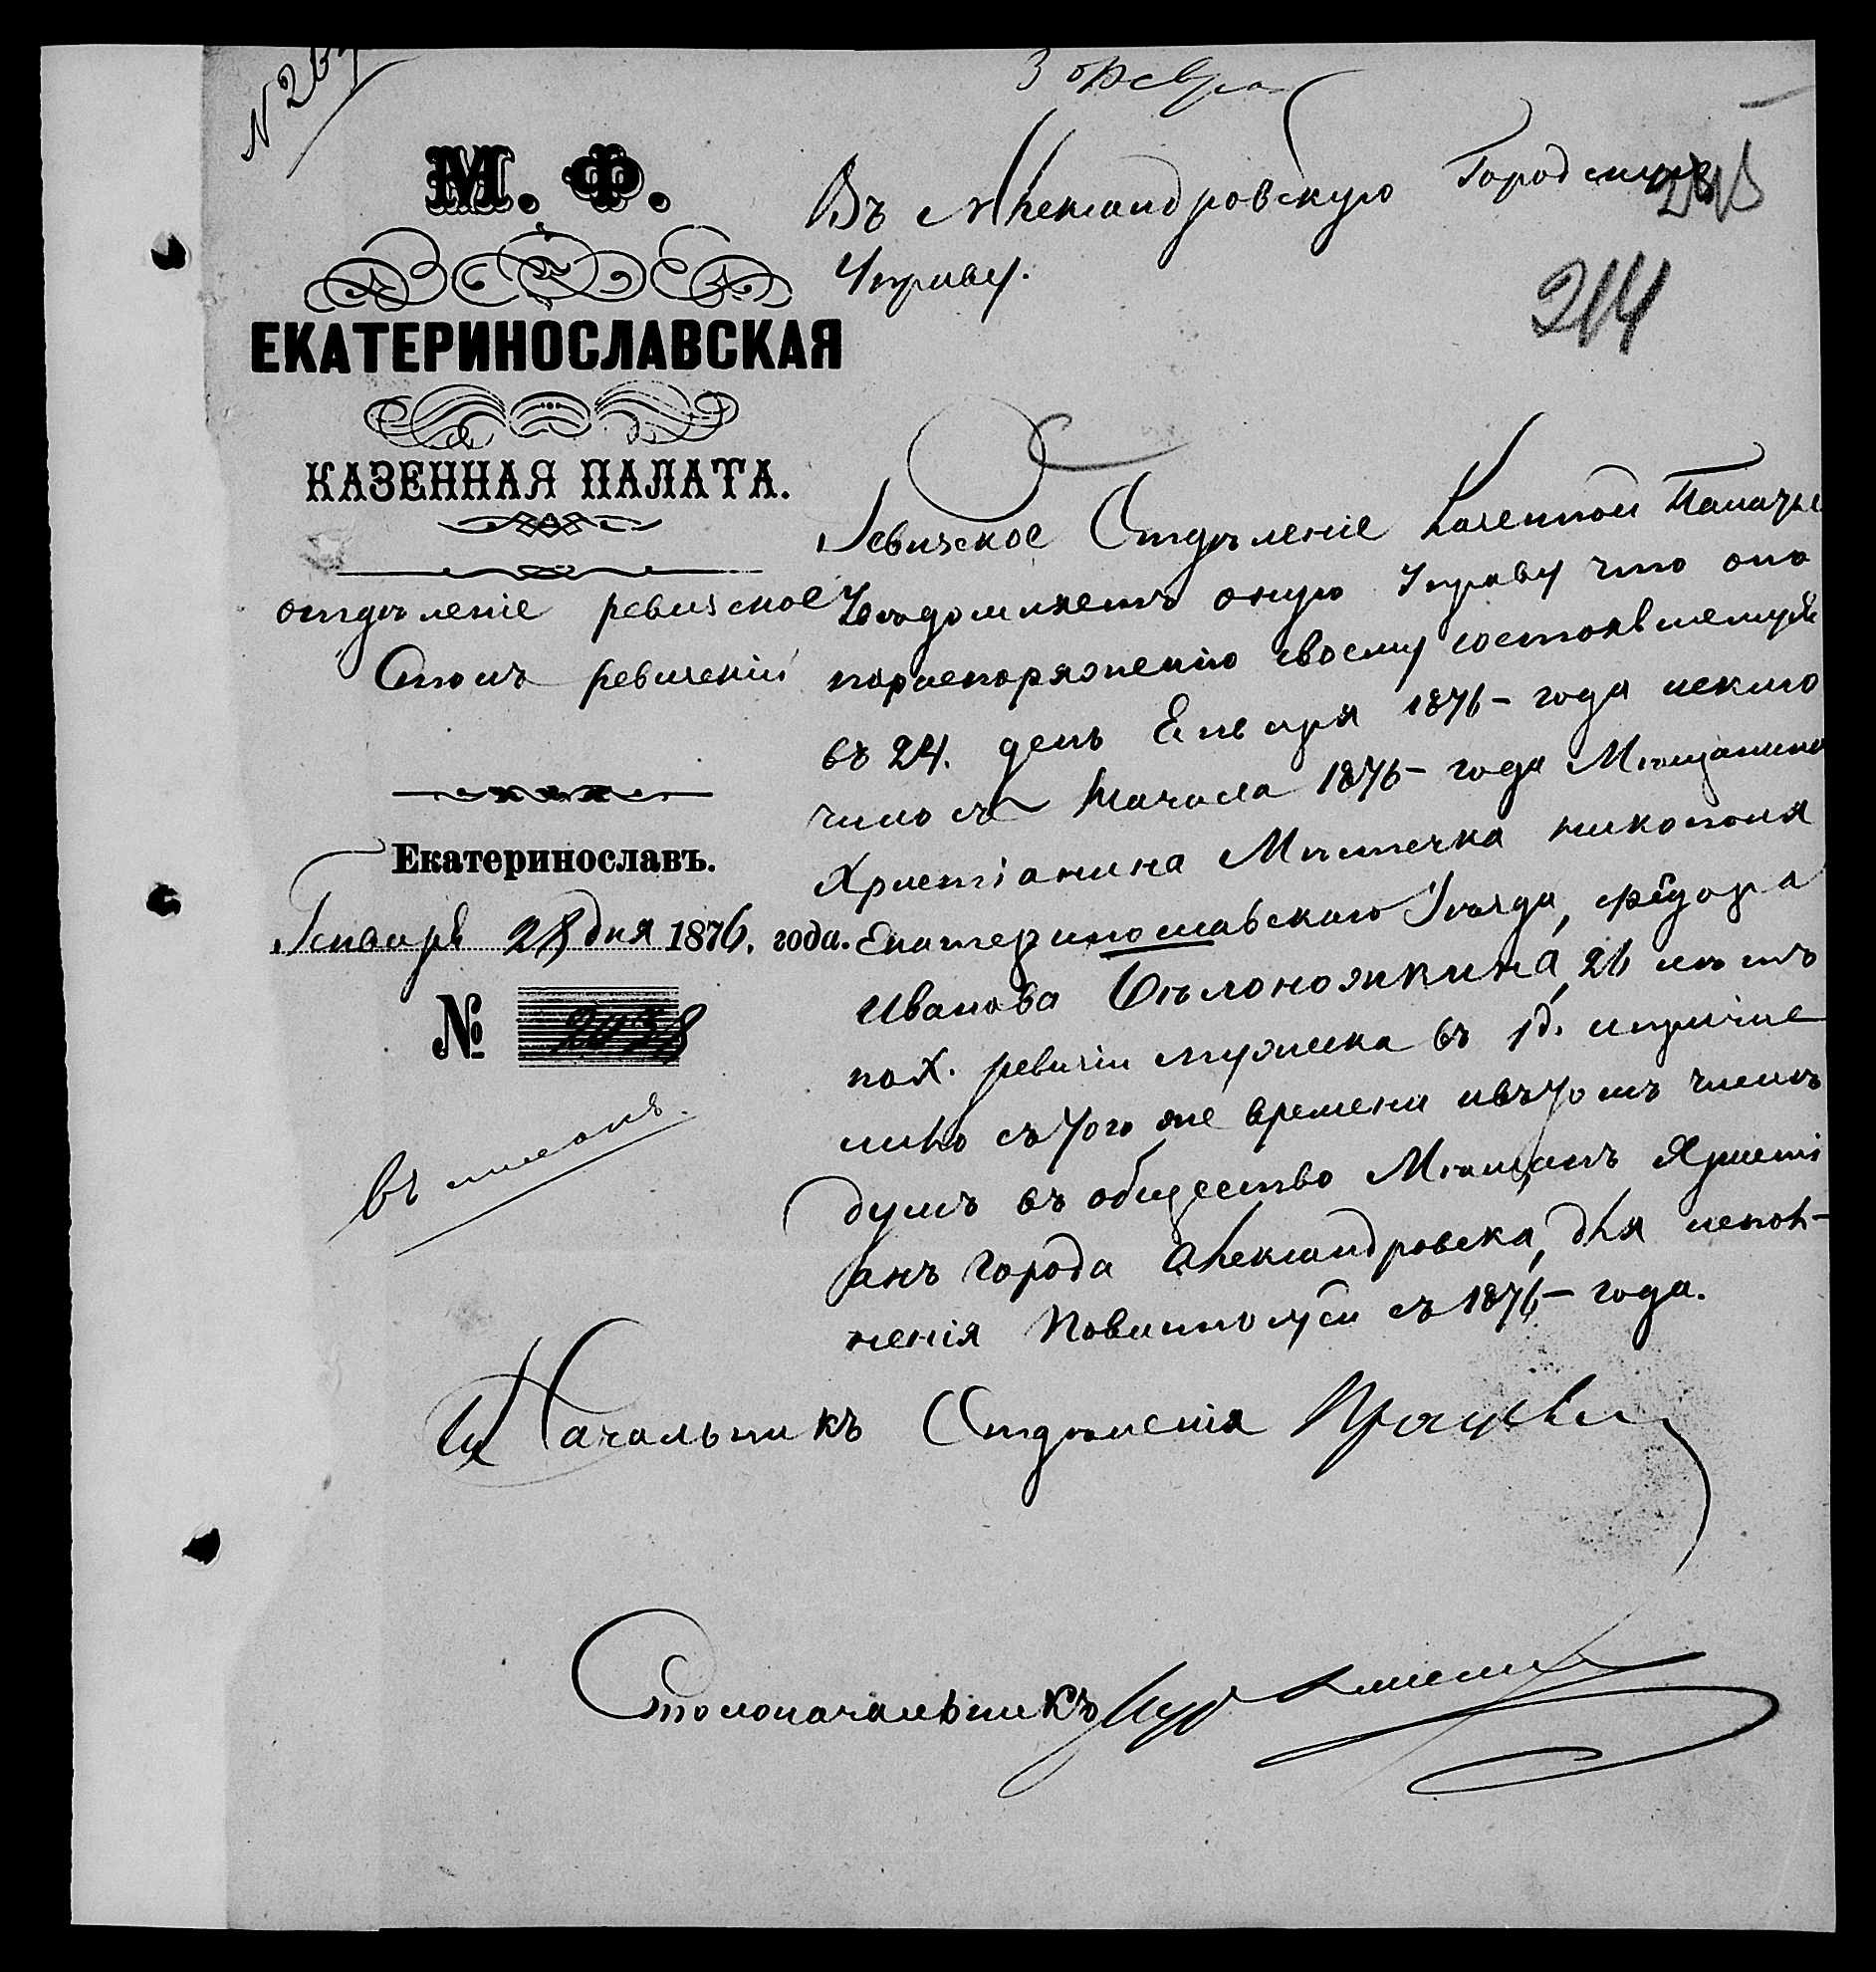 3 Февра
М. Ф.
ЕКАТЕРИНОСЛАВСКАЯ
КАЗЕННАЯ ПАЛАТА.
отдѣленіе ревизское
Столъ ревизскій
Екатеринославъ.
Генваря 28 дня 1876. года.
№ 2038
Въ Александровскую Городскую
Управу.
214
Ревизское Отдѣленіе Казенной Палаты
Увѣдомляетъ оную Управу что оно
пораспоряженію своему состоявшемуся
въ 24. день Января 1876– года исклю
чило съ Начала 1876– года Мѣщанина
Христіанина Мѣстечка Никополя
Екатеринославскаго Уѣзда, Фёдора
Иванова Бѣлоножкина, 26 лѣтъ
по X. ревизіи мужеска въ 1д. и причис
лило съ того же времени въ томъ числѣ
душъ въ общество Мѣщанъ Христі
анъ города Александровска, для испол–
ненія Повинностей съ 1876– года.
Начальникъ Отдѣленія
Столоначальникъ